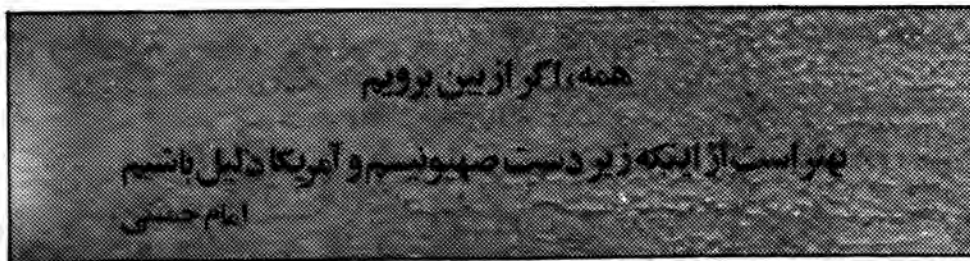 همه، اگر از بین برویم
بهتر است از اینکه زیر دست صهیونیسم و آمریکا ذلیل باشیم
امام خمینی